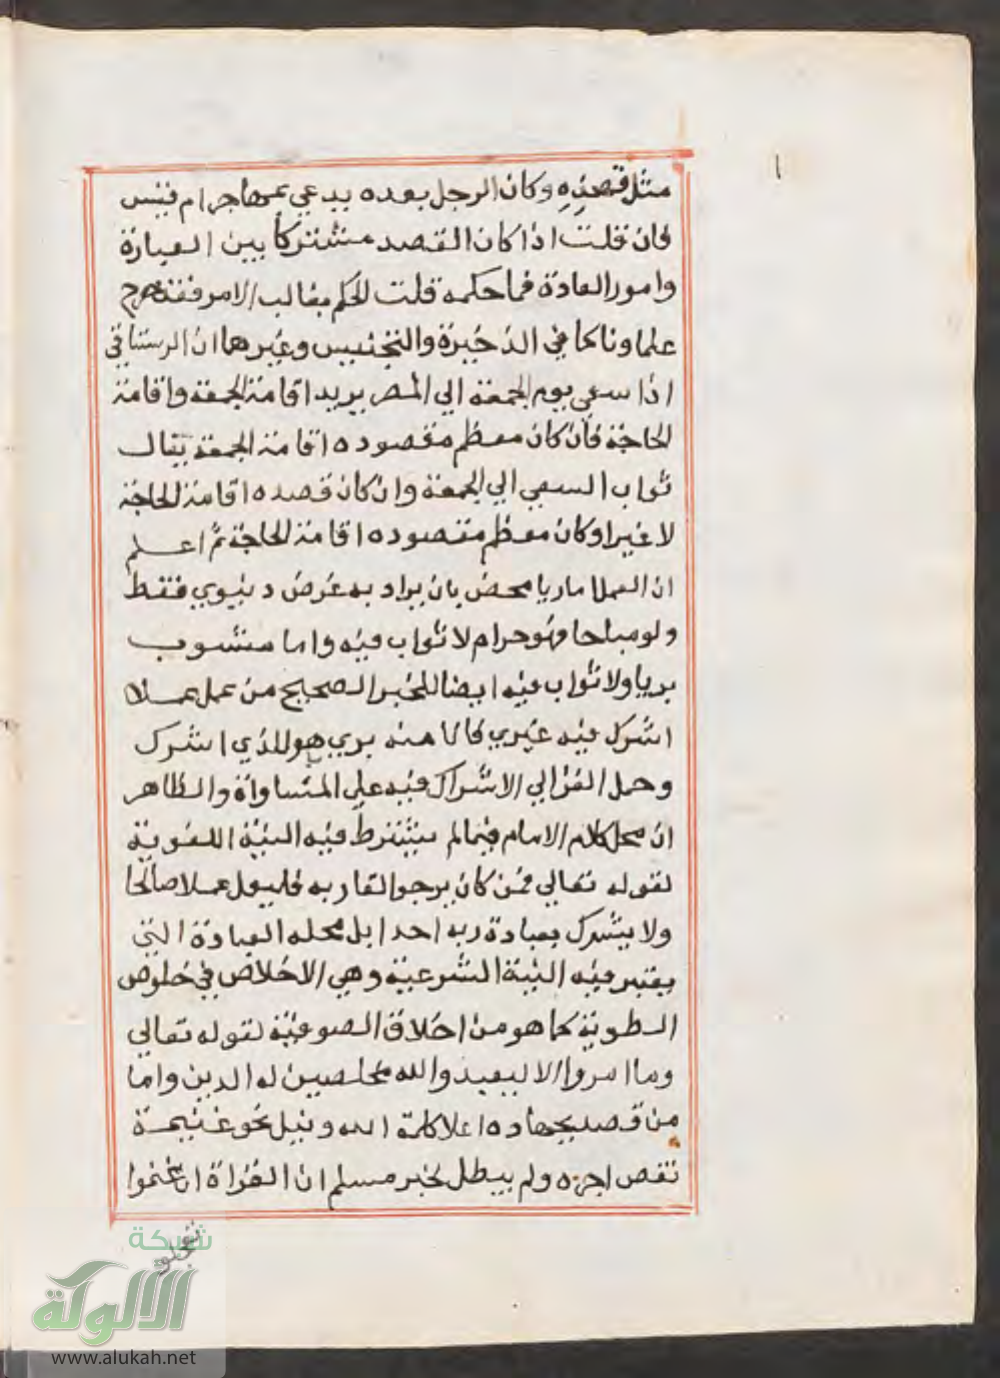 مثل قصته وكان الرجل بعده يدعي بمهاجر ام قيس
فان قلت اذا كان القصد مشتركا بين العبادة
وامور العادة فما حكمه قلت الحكم بغالب الامر فقد صرح
علماونا كما في الذخيرة والتجنيس وغيرها ان الرستاقي
اذا سعي يوم الجمعة الي المصر يريد اقامة الجمعة واقامة
الحاجة فان كان معظم مقصوده اقامة الجمعة ينال
ثواب السعي الي الجمعة وان كان قصده اقامة الحاجة
لا غير او كان معظم مقصوده اقامة الحاجة ثم اعلم
ان العمل اما ريا محض بان يراد به غرض دنيوي فقط
ولو مباحا فهو حرام لا ثواب فيه واما مشوب
بريا ولا ثواب فيه ايضا للخبر الصحيح من عمل عملا
اشرك فيه غيري فانا منه بري هو للذي اشرك
وحمل الغزالي الاشراك فيه علي المتساواة والظاهر
ان محل كلام الامام فيما لم يشترط فيه النية اللغوية
لقوله تعالي فمن كان يرجو القا ربه فليعمل عملا صالحا
ولا يشرك بعبادة ربه احدا بل محله العبادة التي
يعتبر فيه النية الشرعية وهي الاخلاص في خلوص
الطوية كما هو من اخلاق الصوفية لقوله تعالي
وما امروا الا ليعبدوا الله مخلصين له الدين واما
من قصد بجهاده اعلا كلمة الله ونيل نحو غنيمة
نقص اجره ولم يبطل لخبر مسلم ان الغزاة ان غنموا
تعجلو
شبكة
الألوكة
www.alukah.net